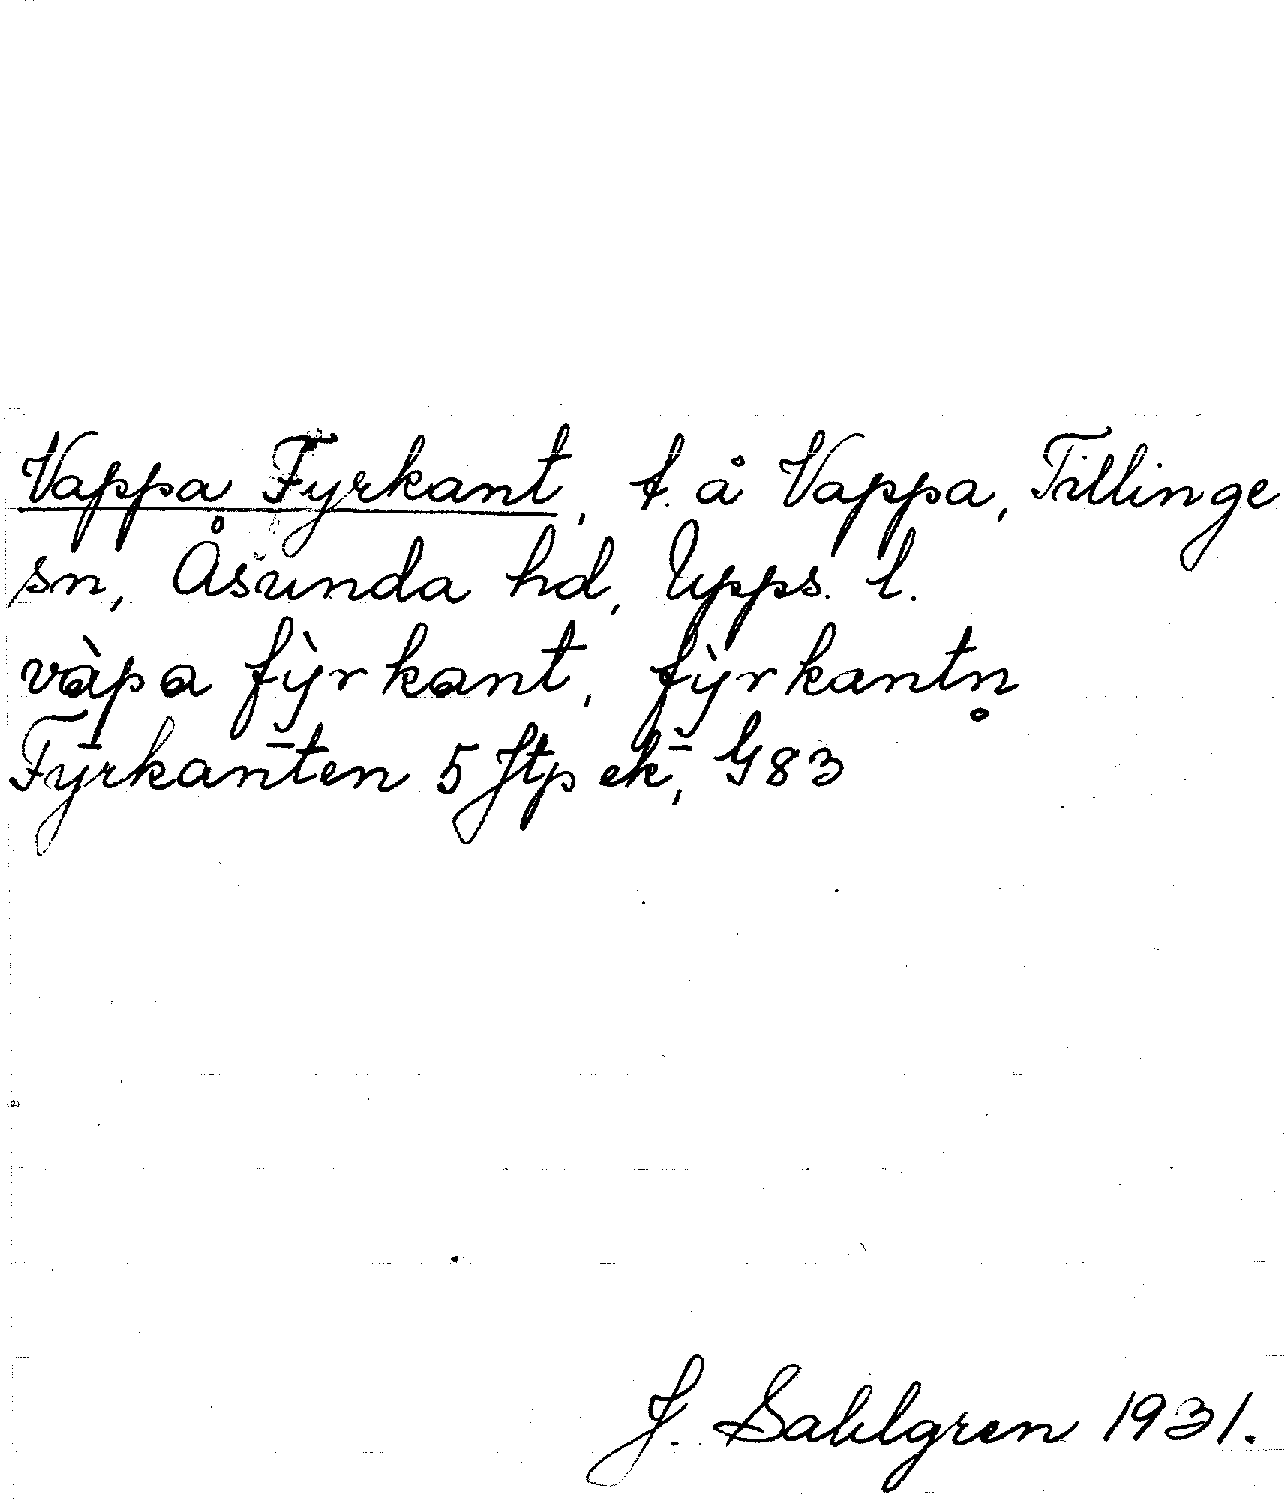 Vappa Fyrkant, t. å Vappa, Tillinge
sn, Åsunda hd, Upps. l.
vàpa fỳrkant, fỳrkantn̥
Fyrkanten 5 Jtp ek, G83
J. Sahlgren 1931.